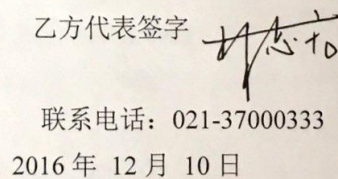 乙方代表签字
联系电话：021-37000333
2016 年 12 月 10 日